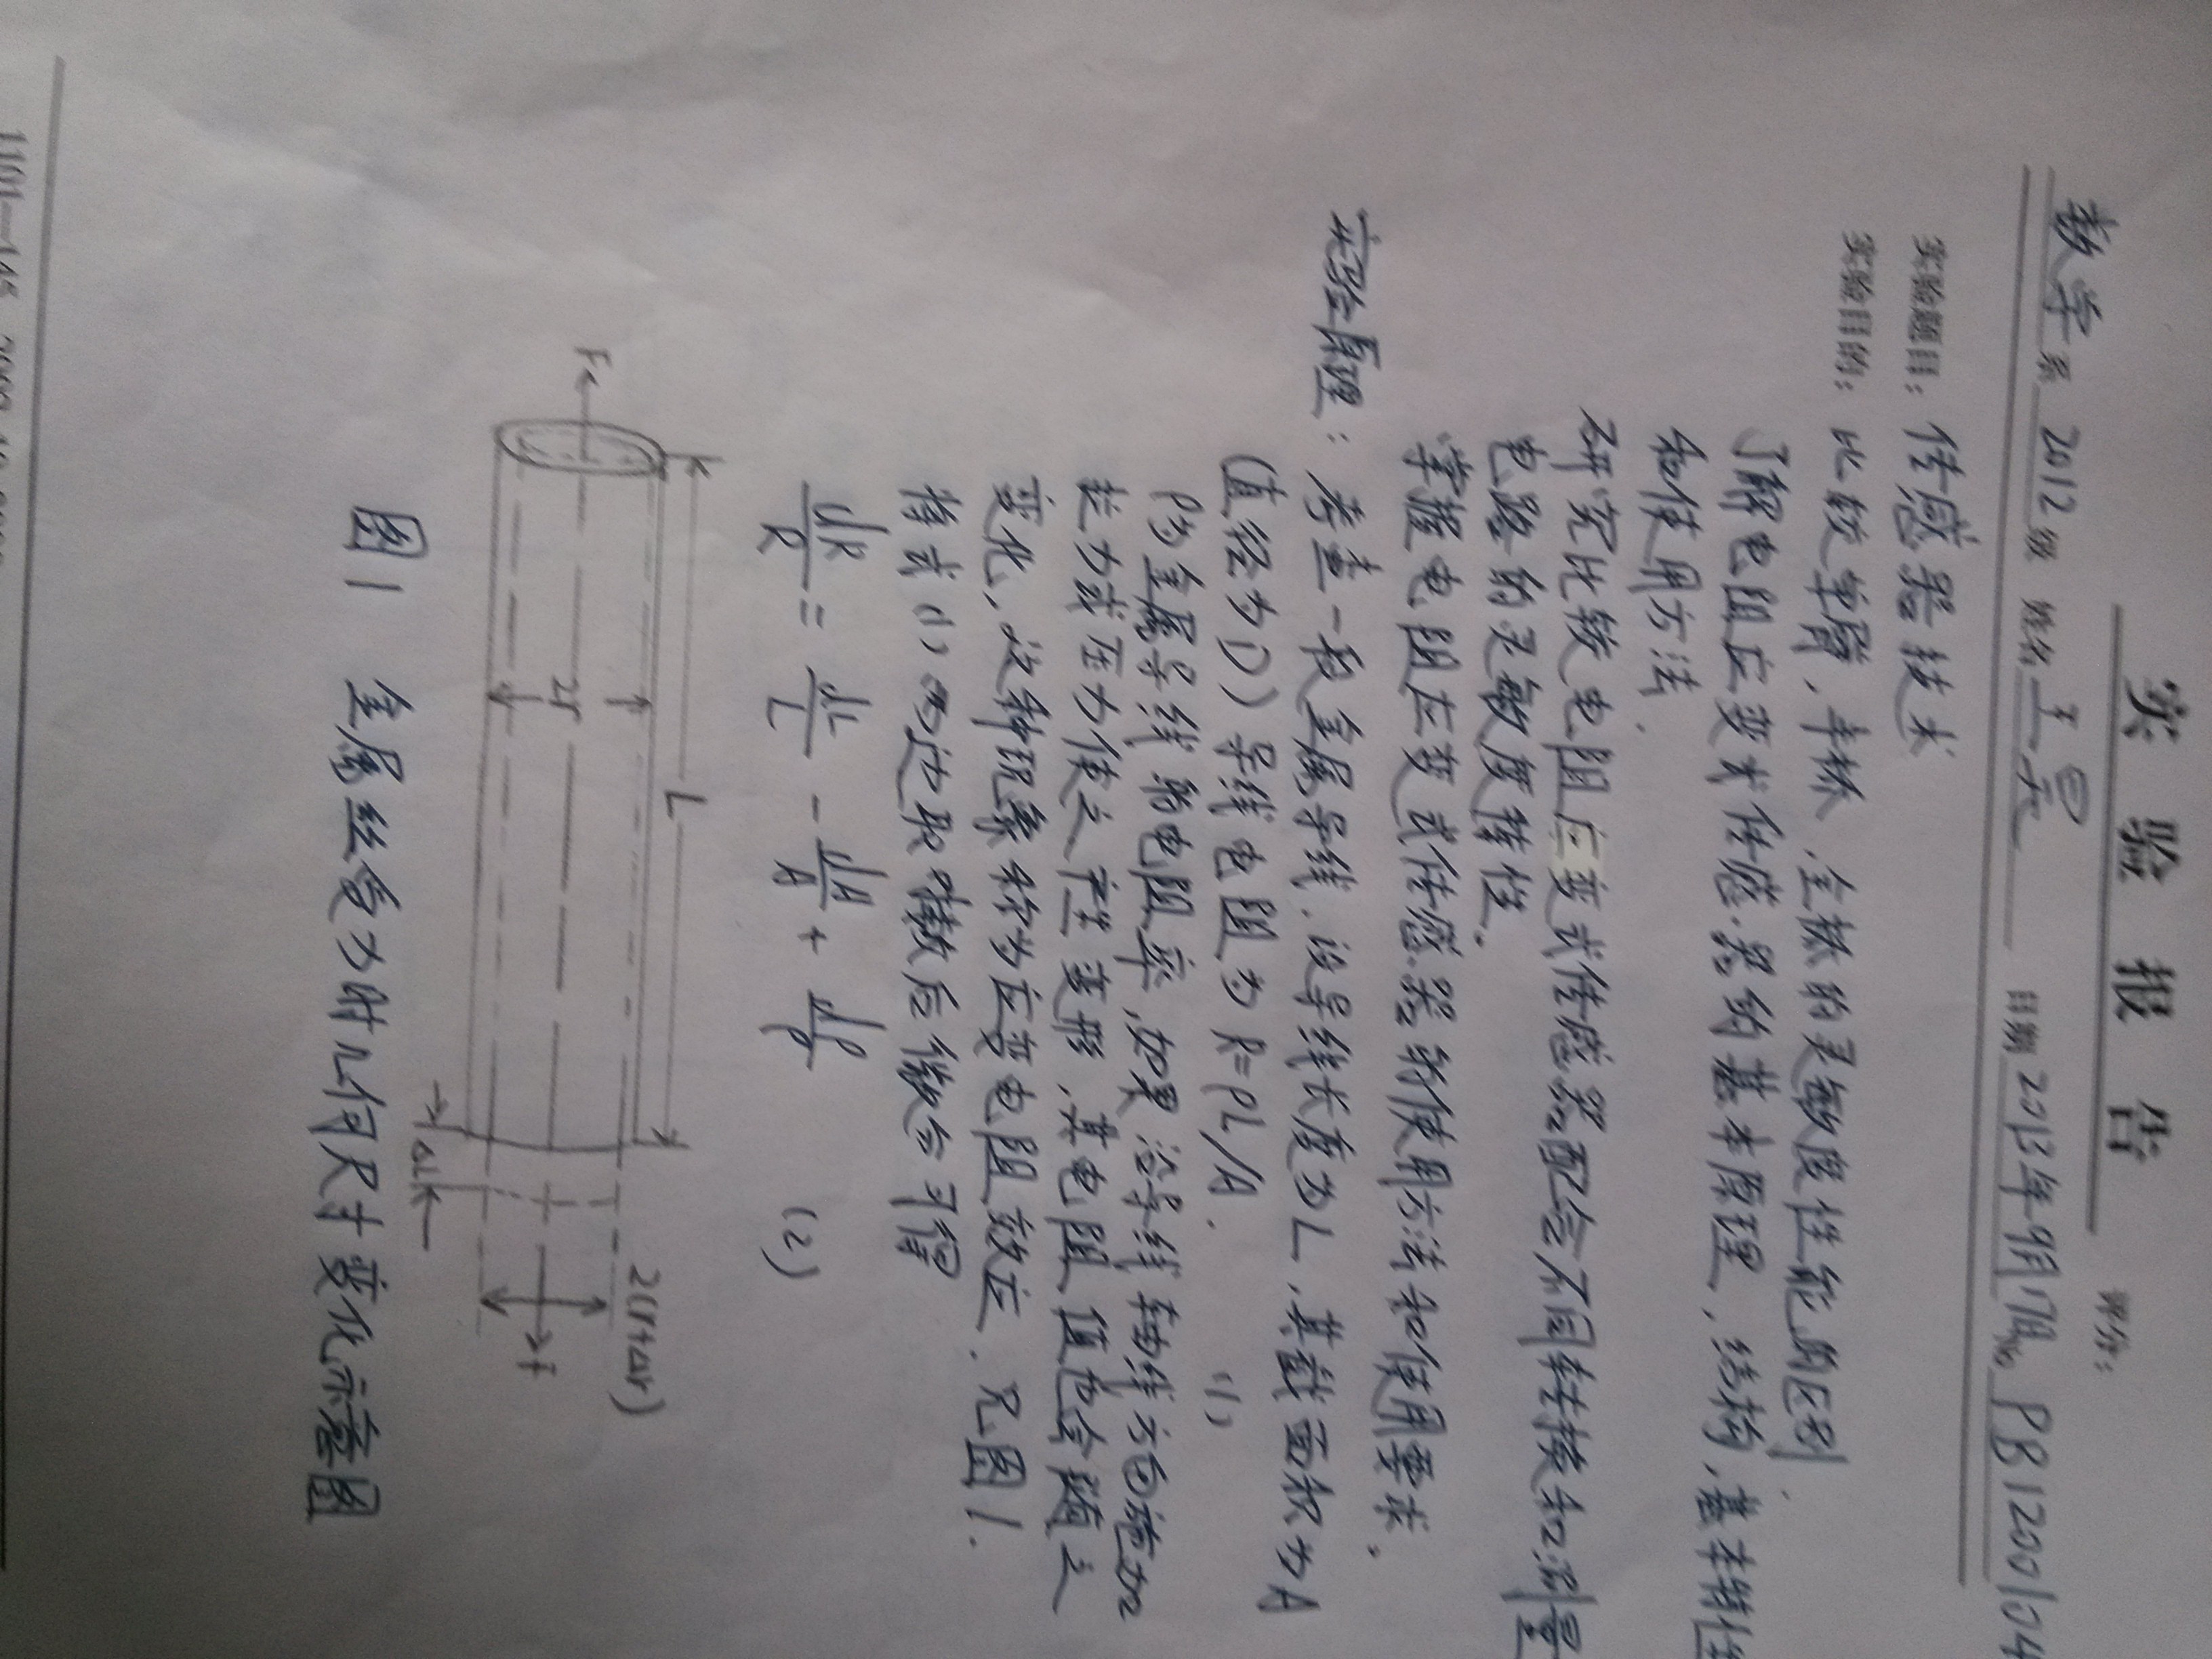 实验报告
评分:
数学系 2012级 姓名 王晃 日期 2013年9月17日 No. PB1200104
实验题目: 传感器技术
实验目的: 比较单臂、半桥、全桥的灵敏度性能的区别
了解电阻应变式传感器的基本原理,结构,基本特性
和使用方法.
研究比较电阻应变式传感器配合不同转换和测量
电路的灵敏度特性.
掌握电阻应变式传感器的使用方法和使用要求.
实验原理: 考查一段金属导线,设导线长度为L,其截面积为A
(值径为D)导线电阻为R=ρL/A. (1)
ρ为金属导线的电阻率,如果沿导线轴线方向施加
拉力或压力使之产生变形,其电阻值也会随之
变化,这种现象称为应变电阻效应.见图1.
将式(1)两边取对数后微分可得
dR/R = dL/L - dA/A + dρ/ρ (2)
L
2(r+Δr)
F
2r
F
ΔL
图1 金属丝受力时几何尺寸变化示意图